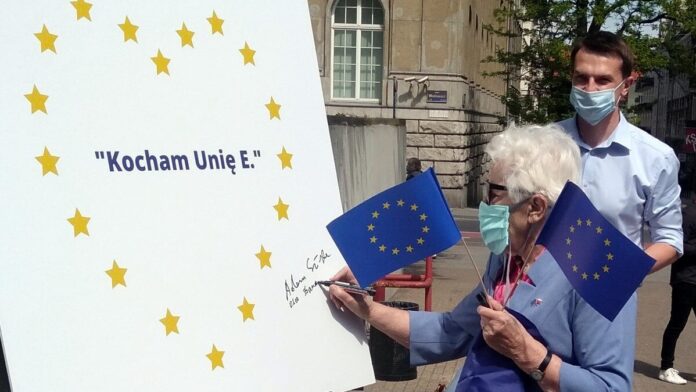 "Kocham Unię E."
Adam